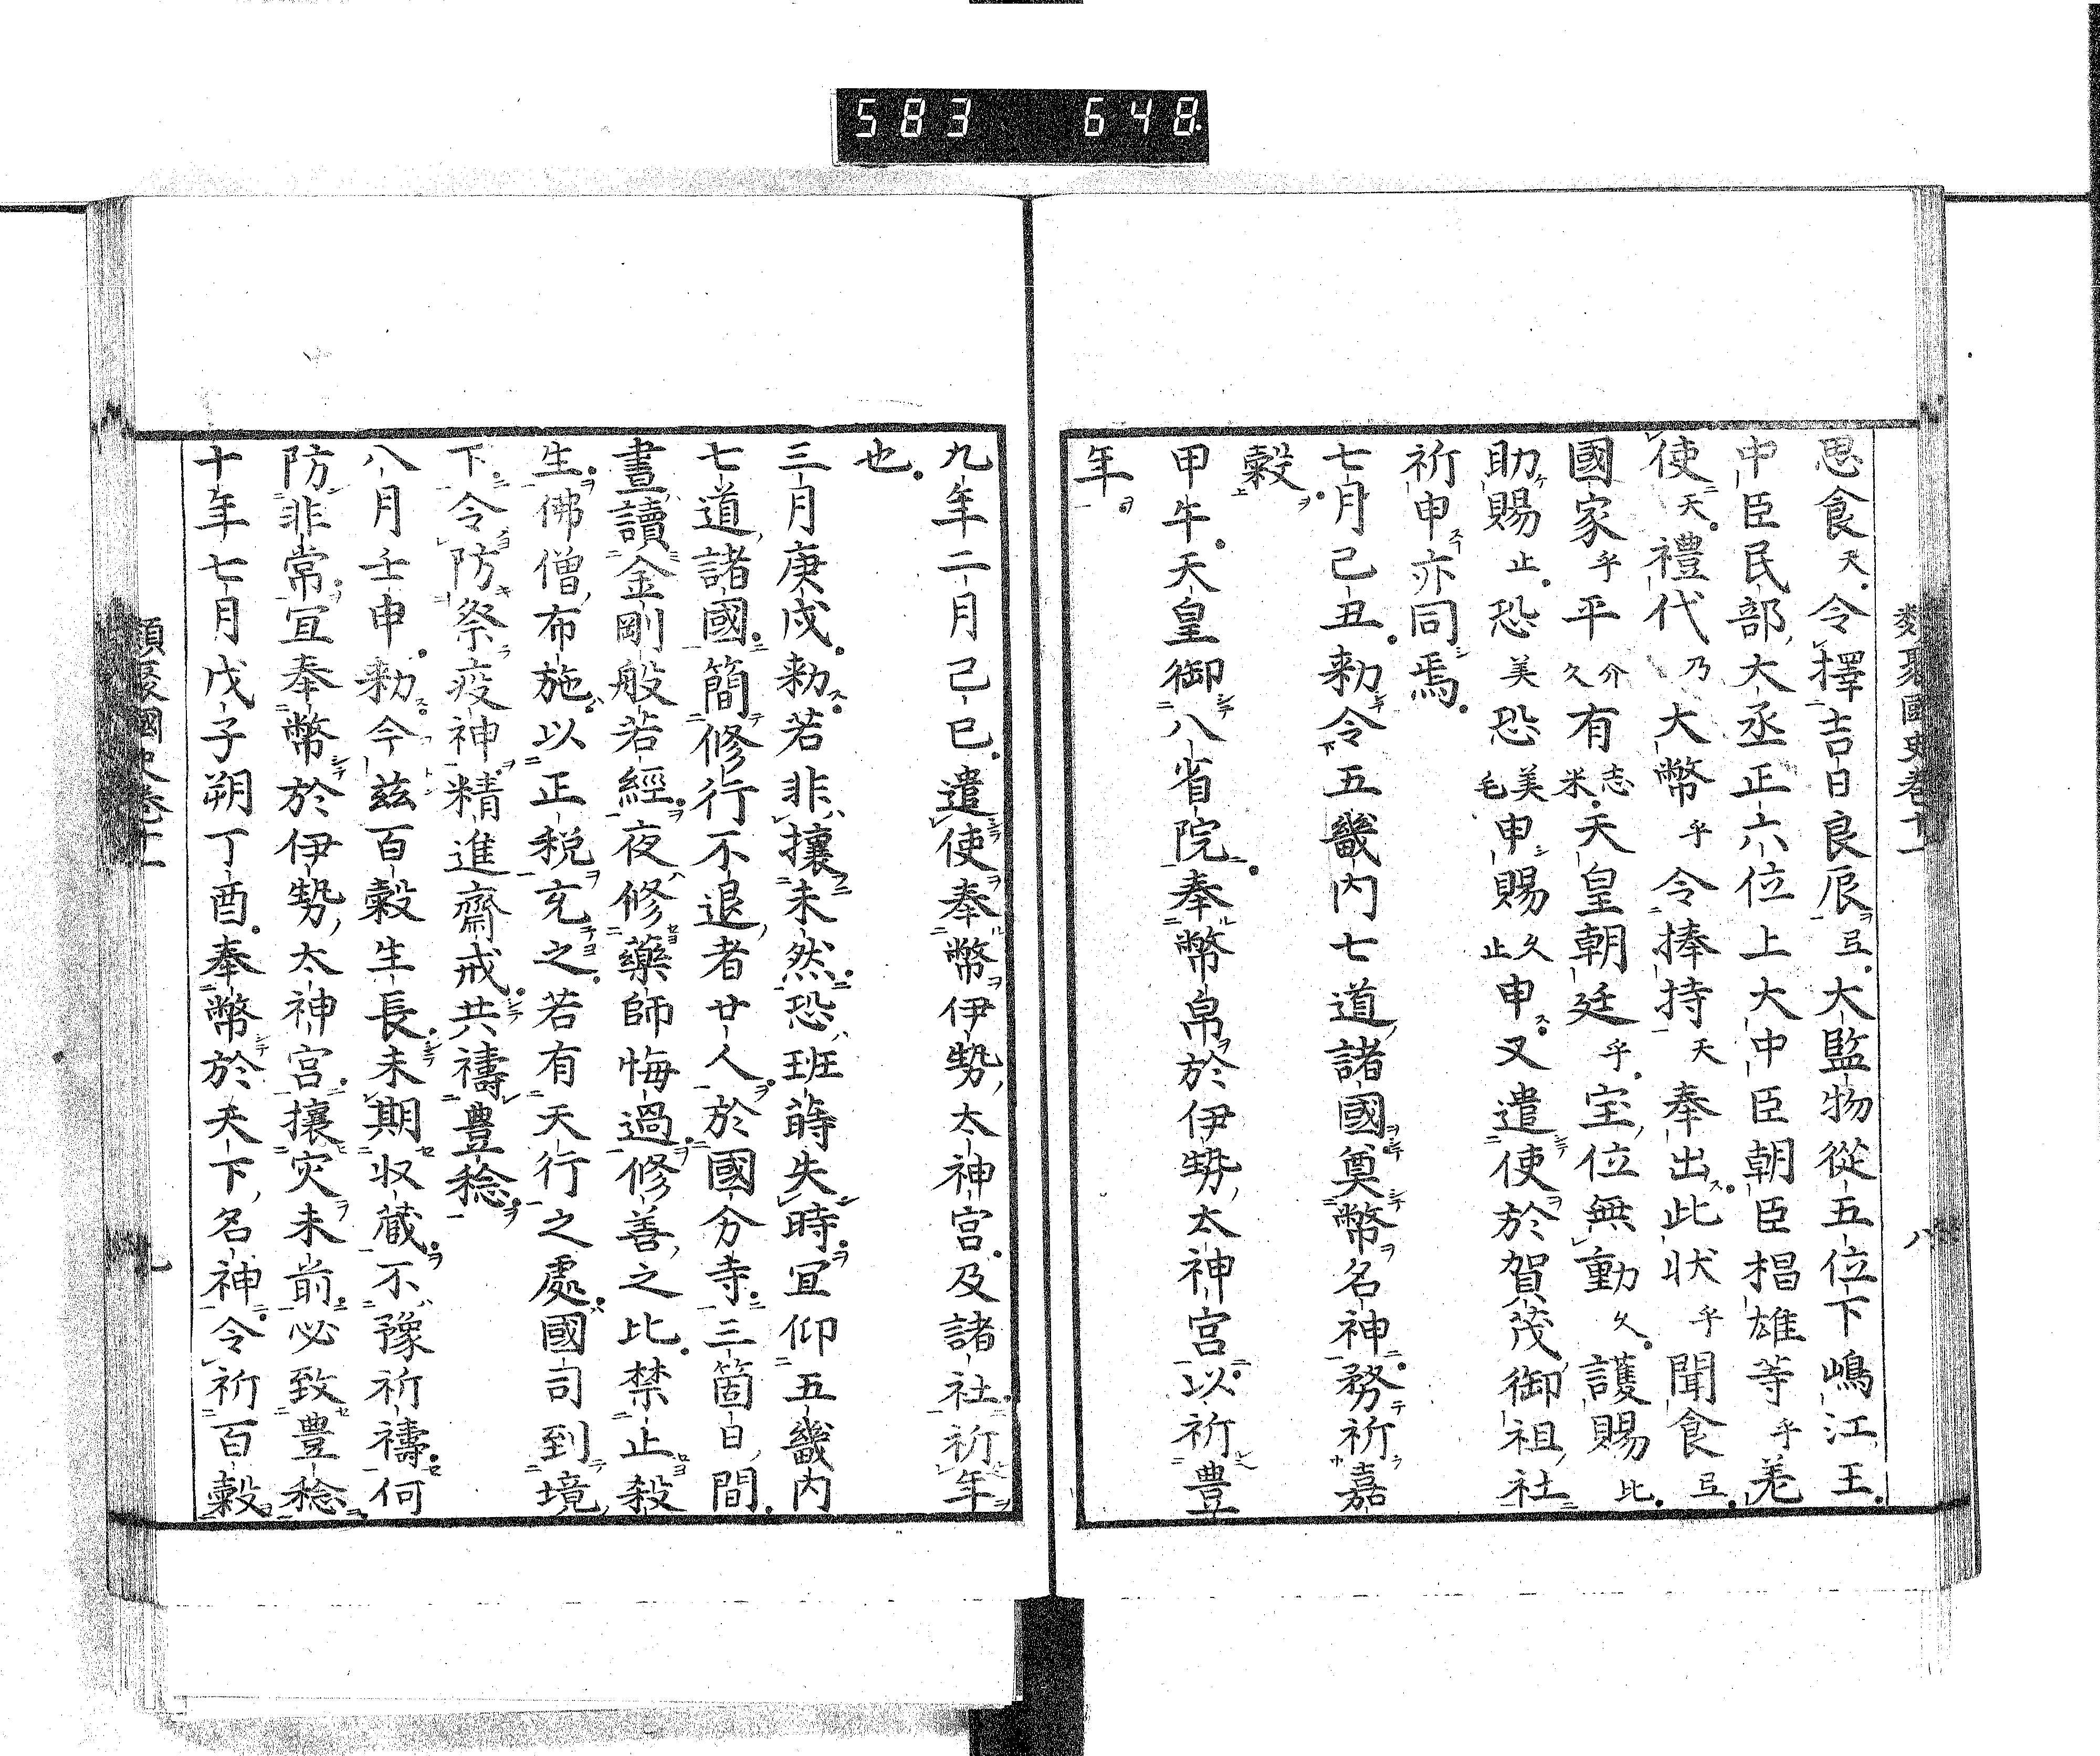 583 648
類聚國史卷十一 八
思食天令擇吉日良辰弖大監物從五位下嶋江王
中臣民部大丞正六位上大中臣朝臣椙雄等乎差
使天禮代乃大幣乎令捧持天奉出此狀乎聞食弖
國家乎平介久有志米天皇朝廷乎宝位無動久護賜比
助賜止恐美恐美毛申賜久止申又遣使於賀茂御祖社
祈申亦同焉
七月己丑勅令五畿内七道諸國奠幣名神務祈嘉
穀
甲午天皇御八省院奉幣帛於伊勢太神宮以祈豊
年
九年二月己巳遣使奉幣伊勢太神宮及諸社祈年
也
三月庚戌勅若非攘未然恐班蒔失時冝仰五畿内
七道諸國簡修行不退者廿人於國分寺三箇日間
晝讀金剛般若經夜修藥師悔過修善之比禁止殺
生佛僧布施以正税充之若有天行之處國司到境
下令防祭疫神精進齋戒共禱豊稔
八月壬申勅今茲百穀生長未期収蔵不豫祈禱何
防非常冝奉幣於伊勢太神宮攘灾未前必致豊稔
十年七月戊子朔丁酉奉幣於天下名神令祈百穀
類聚國史卷十一 九